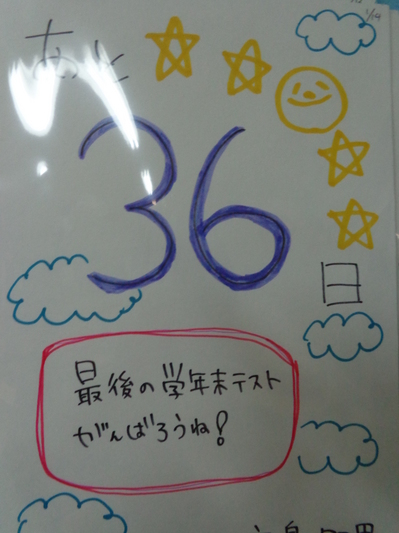 あと
36
日
最後の学年末テスト
がんばろうね!